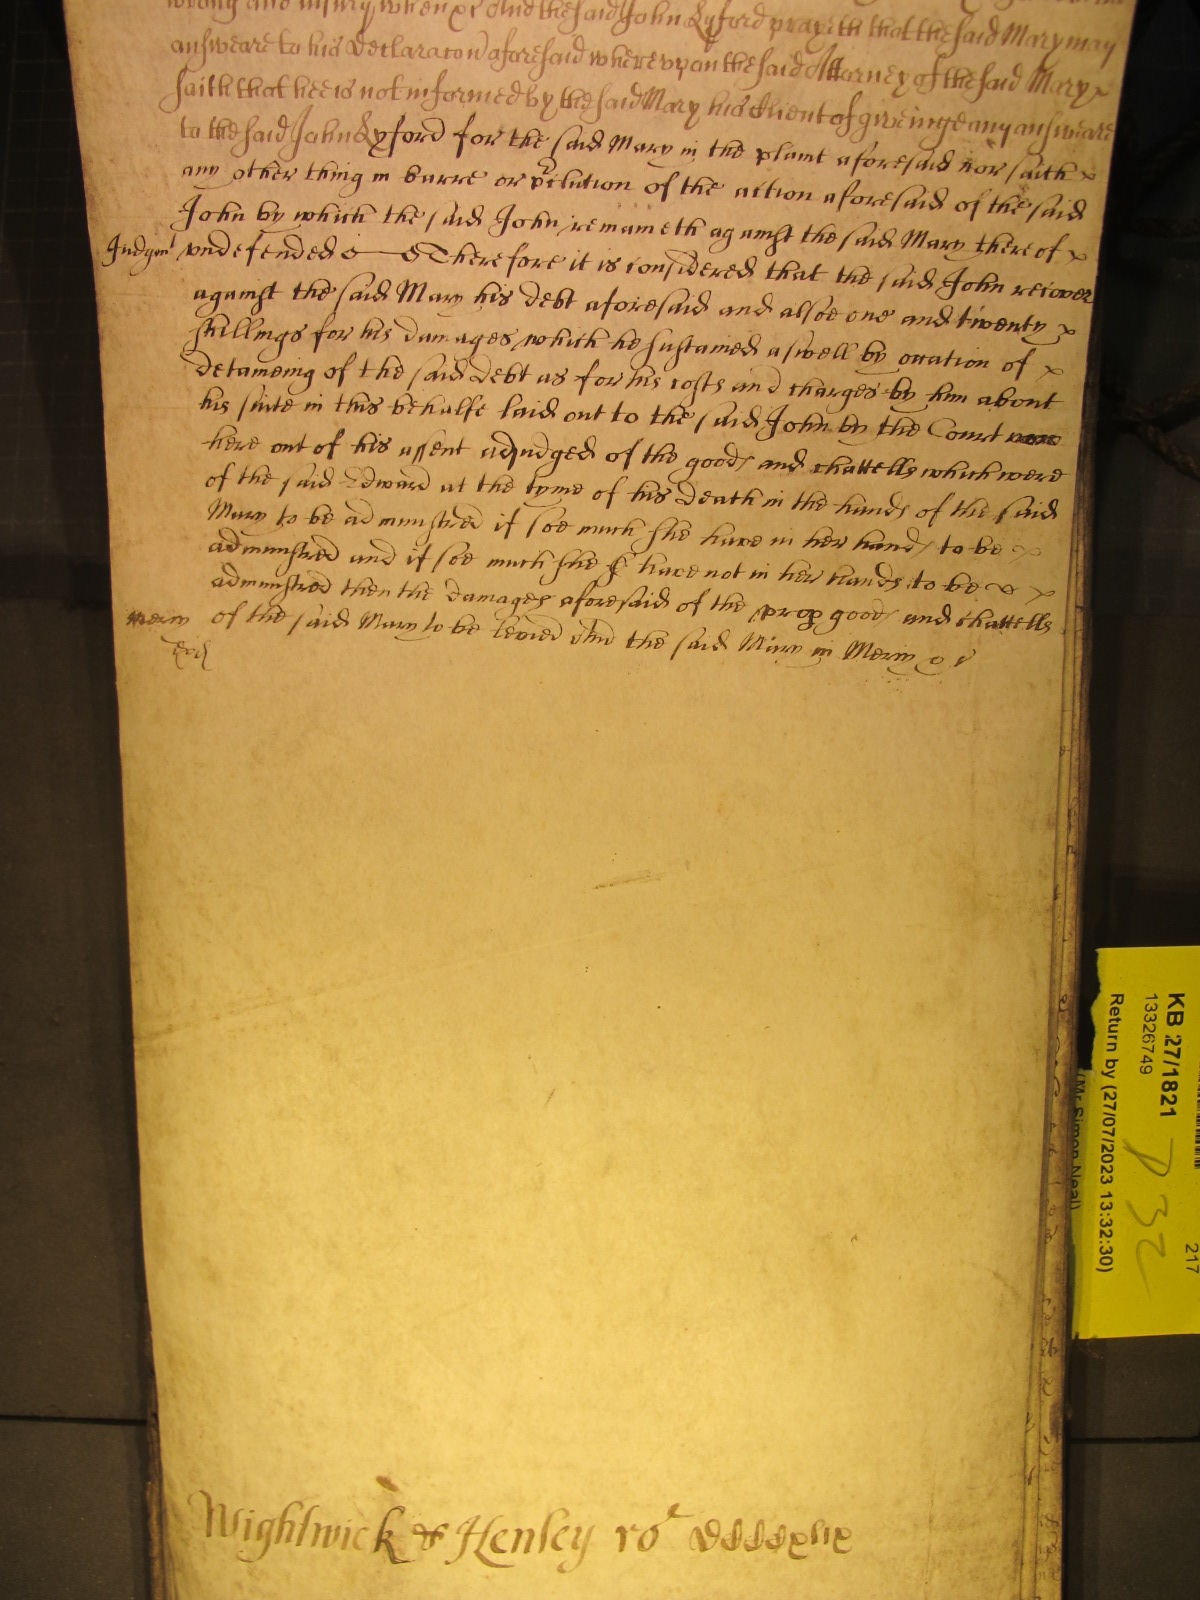 wrong and injury when &c And the said John Lyford prayeth that the said Mary may
answeare to his declaracon aforesaid wherevpon the said Attorney of the said Mary x
saith that hee is not informed by the said Mary his Client of giveinge any answeare
to the said John Lyford for the said Mary in the plaint aforesaid nor saith x
any other thing in barre or p'clution of the action aforesaid of the said
John by which the said John remaineth against the said Mary thereof x
Judgmt vndefended Therefore it is considered that the said John recover
against the said Mary his debt aforesaid and alsoe one and twenty x
shillings for his damages which he sustained aswell by occation of x
detaineing of the said debt as for his costs and charges by him about
his suite in this behalfe laid out to the said John by the Court
here out of his assent adjudged of the goods and chattells which were
of the said Edward at the tyme of his death in the hands of the said
Mary to be administred if soe much she have in her hands to be x
administred and if soe much she have not in her hands to be x x
administred then the damages aforesaid of the prop goods and chattells
mercy of the said Mary to be levied And the said Mary in Mercy &c
Wightwick & Henley ro
KB 27/1821
13326749
Return by (27/07/2023 13:32:30)
(Mr Simon Neal)
217
P 32